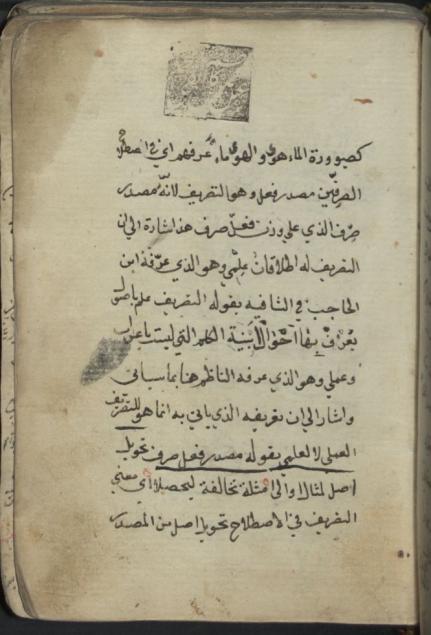 كصيرورة الماء هوى والهوى ماء عرفهم اي في اصطلاح
الصرفيّين مصدر فعل وهو التصريف لانّه مصدر
صرّف الذي على وزن فعّل صرف هذا اشارة الى ان
التصريف له اطلاقان علمي وهو الذي عرّفه ابن
الحاجب في الشافيه بقوله التصريف علم باصول
يعرف بها احوال ابنية الكلم التي ليست باعراب
وعملي وهو الذي عرفه الناظم هنا بما سيأتي
واشار الى ان تعريفه الذي ياتي به انما هو للتصريف
العملي لا العلمي بقوله مصدر فعل صرف تحويل
اصل لمثال او الى امثلة مخالفة ليحصل اي معنى
التصريف في الاصطلاح تحويل اصل من المصدر